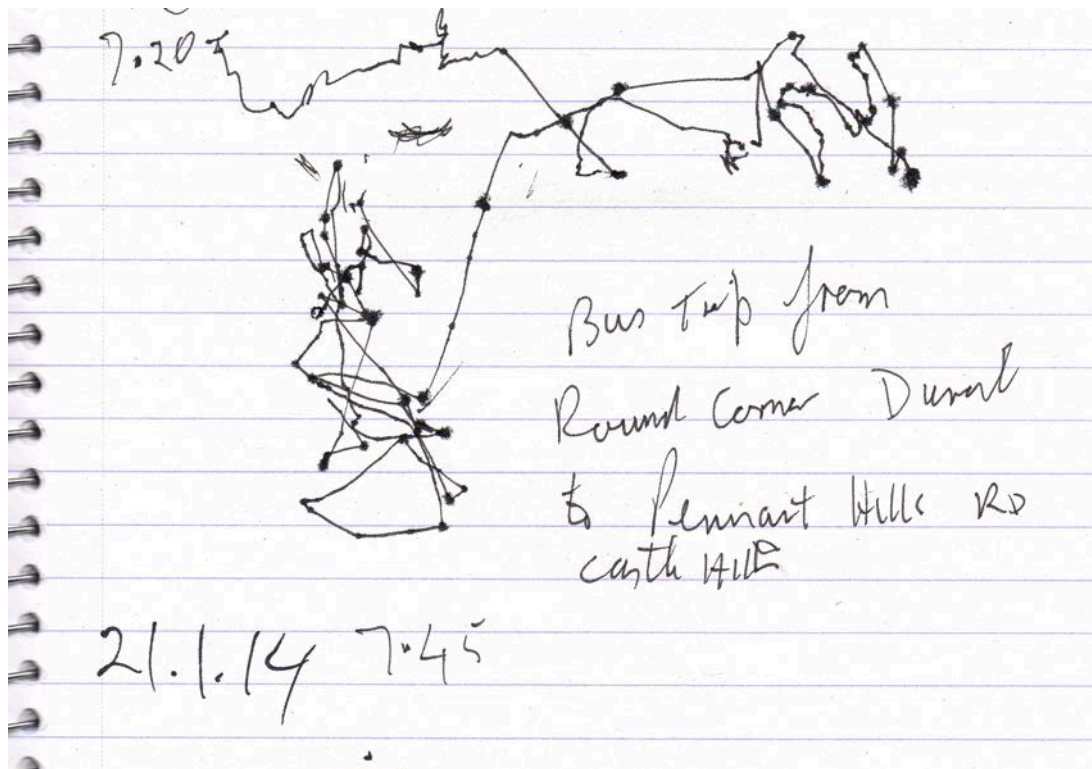 7.20
Bus Trip from
Round Corner Dural
to Pennant Hills RD
Castle Hill
21.1.14 7.45